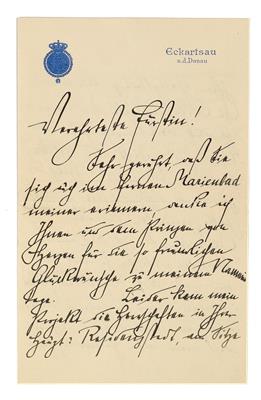 Eckartsau
a.d.Donau
Verehrteste Fürstin!
Sehr gerührt, daß Sie
sich im Marienbad
meiner erinnern danke ich
Ihnen und dem Prinzen von
Herzen für die so freundlichen
Glückwünsche zu meinem Namens
tage. Leider kam mein
Projekt die Herrschaften in Ihrer
Haupt: Residenzstadt, am